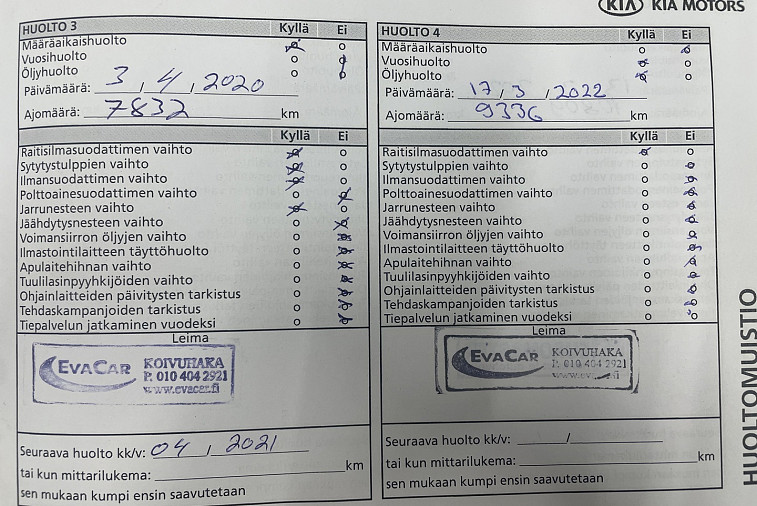 KIA KIA MOTORS
HUOLTO 3 Kyllä Ei
Määräaikaishuolto
Vuosihuolto
Öljyhuolto
Päivämäärä: 3 / 4 / 2020
Ajomäärä: 7832 km
Kyllä Ei
Raitisilmasuodattimen vaihto
Sytytystulppien vaihto
Ilmansuodattimen vaihto
Polttoainesuodattimen vaihto
Jarrunesteen vaihto
Jäähdytysnesteen vaihto
Voimansiirron öljyjen vaihto
Ilmastointilaitteen täyttöhuolto
Apulaitehihnan vaihto
Tuulilasinpyyhkijöiden vaihto
Ohjainlaitteiden päivitysten tarkistus
Tehdaskampanjoiden tarkistus
Tiepalvelun jatkaminen vuodeksi
Leima
EVACAR KOIVUHAKA
P. 010 404 2921
www.evacar.fi
Seuraava huolto kk/v: 04 / 2021
tai kun mittarilukema: km
sen mukaan kumpi ensin saavutetaan
HUOLTO 4 Kyllä Ei
Määräaikaishuolto
Vuosihuolto
Öljyhuolto
Päivämäärä: 17 / 3 / 2022
Ajomäärä: 9336 km
Kyllä Ei
Raitisilmasuodattimen vaihto
Sytytystulppien vaihto
Ilmansuodattimen vaihto
Polttoainesuodattimen vaihto
Jarrunesteen vaihto
Jäähdytysnesteen vaihto
Voimansiirron öljyjen vaihto
Ilmastointilaitteen täyttöhuolto
Apulaitehihnan vaihto
Tuulilasinpyyhkijöiden vaihto
Ohjainlaitteiden päivitysten tarkistus
Tehdaskampanjoiden tarkistus
Tiepalvelun jatkaminen vuodeksi
Leima
EVACAR KOIVUHAKA
P. 010 404 2921
Seuraava huolto kk/v: /
tai kun mittarilukema: km
sen mukaan kumpi ensin saavutetaan
HUOLTOMUISTIO